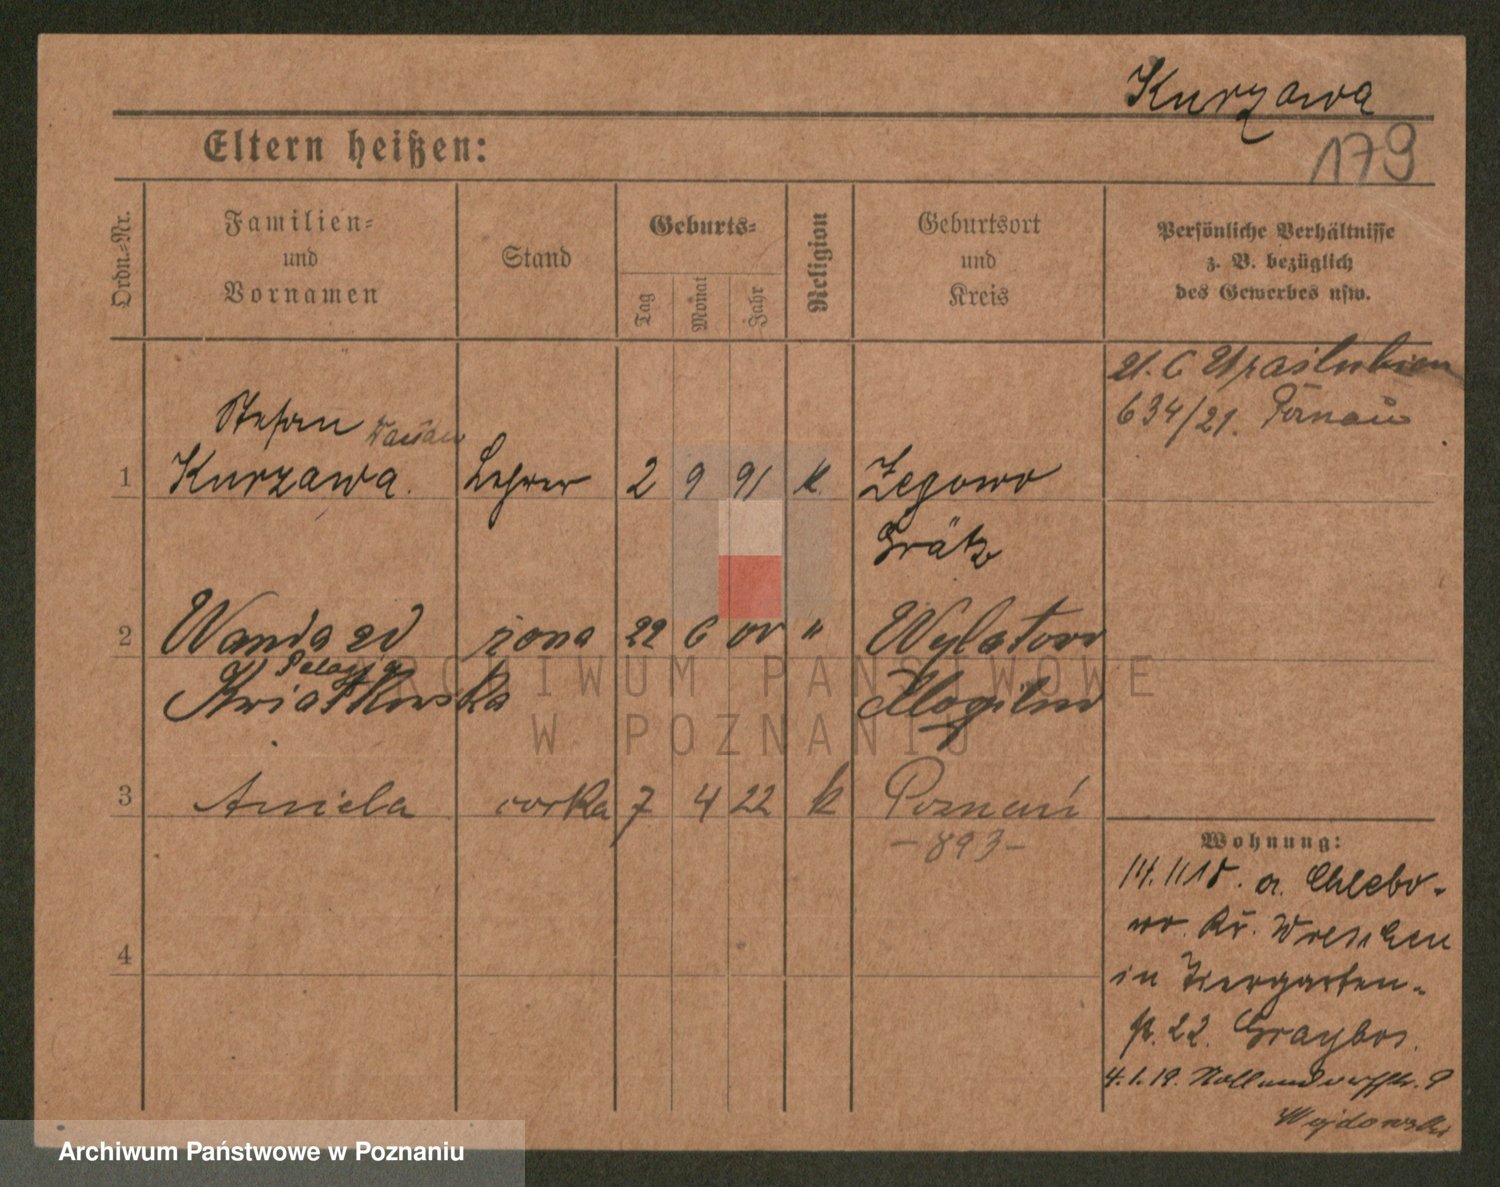 Kurzawa
179
Eltern heißen:
Ordn.-Nr.
Familien-
und
Vornamen
Stand
Geburts-
Tag
Monat
Jahr
Religion
Geburtsort
und
Kreis
Persönliche Verhältnisse
z. B. bezüglich
des Gewerbes usw.
634/21.
Stefan
1 Kurzawa. Lehrer 2 9 91 k. Zegowo
Grätz
2 Wanda zd żona 22 6 00 " Wylatowo
Pelagja
Kwiatkowska Mogilno
3 Aniela córka 7 4 22 k Poznań
- 893 -
4
Wohnung:
14.11.18. a. Chlebo-
wo. Kr. Wreschen
in Tiergarten-
str. 22. Graybos.
4.1.19. 9
Wojdowski
ARCHIWUM PAŃSTWOWE
W POZNANIU
Archiwum Państwowe w Poznaniu